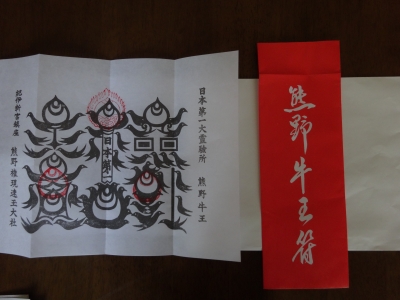 日本第一大霊験所 熊野牛王
日本第一
紀伊新宮鎮座 熊野権現速玉大社
熊野牛王符